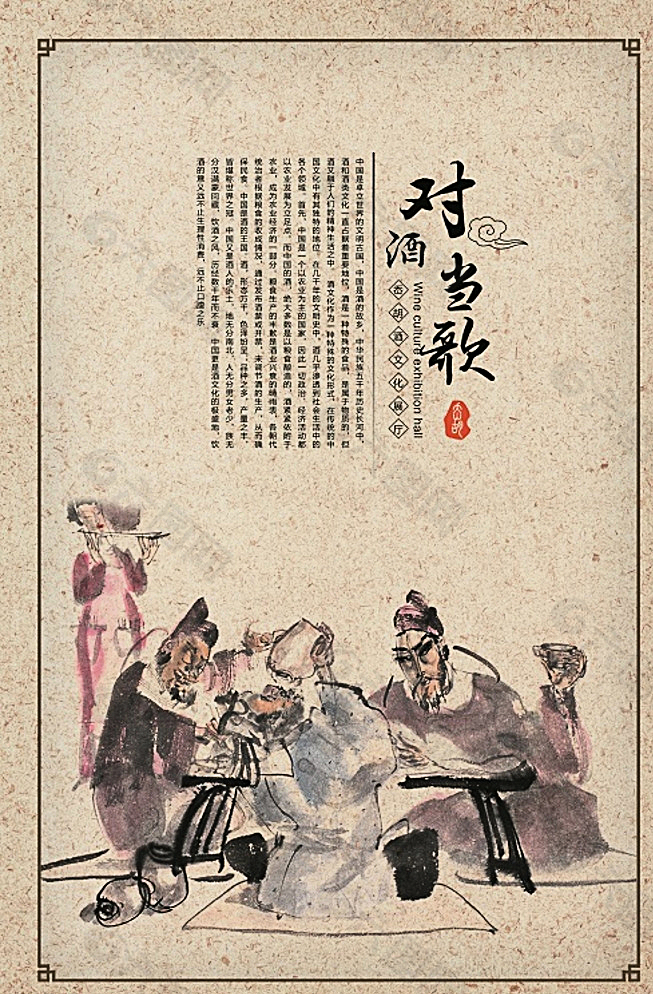 对酒当歌
Wine culture exhibition hall
杏胡酒文化展厅
中国是卓立世界的文明古国，中国是酒的故乡，中华民族五千年历史长河中，
酒和酒类文化一直占据着重要地位，酒是一种特殊的食品，是属于物质的，但
酒又融于人们的精神生活之中，酒文化作为一种特殊的文化形式，在传统的中
国文化中有其独特的地位，在几千年的文明史中，酒几乎渗透到社会生活中的
各个领域。首先，中国是一个以农业为主的国家，因此一切政治、经济活动都
以农业发展为立足点，而中国的酒，绝大多数是以粮食酿造的，酒紧紧依附于
农业，成为农业经济的一部分，粮食生产的丰歉是酒业兴衰的晴雨表，各朝代
统治者根据粮食的收成情况，通过发布酒禁或开禁，来调节酒的生产，从而确
保民食。中国是酒的王国，酒，形态万千，色泽纷呈；品种之多，产量之丰，
皆堪称世界之冠，中国又是酒人的乐土，地无分南北，人无分男女老少，族无
分汉满蒙回藏，饮酒之风，历经数千年而不衰，中国更是酒文化的极盛地，饮
酒的意义远不止生理性消费，远不止口腹之乐